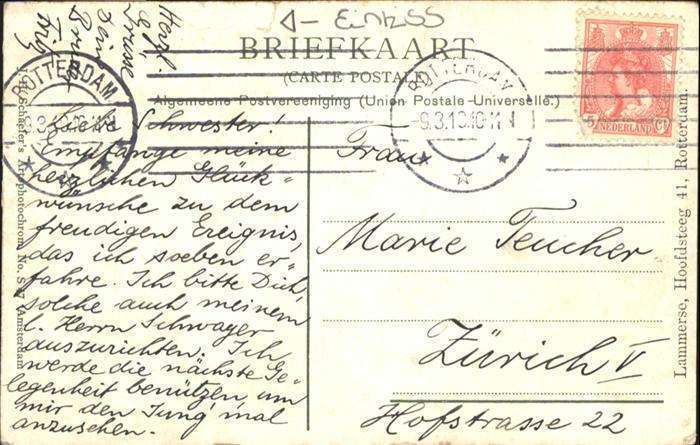 Einkiss
BRIEFKAART
(CARTE POSTALE)
Algemeene Postvereeniging (Union Postale Universelle.)
ROTTERDAM
ROTTERDAM
-9.3.13.10-11V
5 NEDERLAND Ct
Liebe Schwester!
Empfange meine
herzlichen Glück-
wünsche zu dem
freudigen Ereignis,
das ich soeben er-
fahre. Ich bitte Dich,
solche auch meinem
l. Herrn Schwager
auszurichten. Ich
werde die nächste Ge-
legenheit benützen, um
mir den Jung' mal
anzusehen.
Herzl.
Grüsse
Dein
Bruder
Fritz
Frau
Marie Teucher
Zürich V
Hofstrasse 22
Schaefer's Artphotochrom No. Amsterdam
Lammerse, Hoofdsteeg 41, Rotterdam.